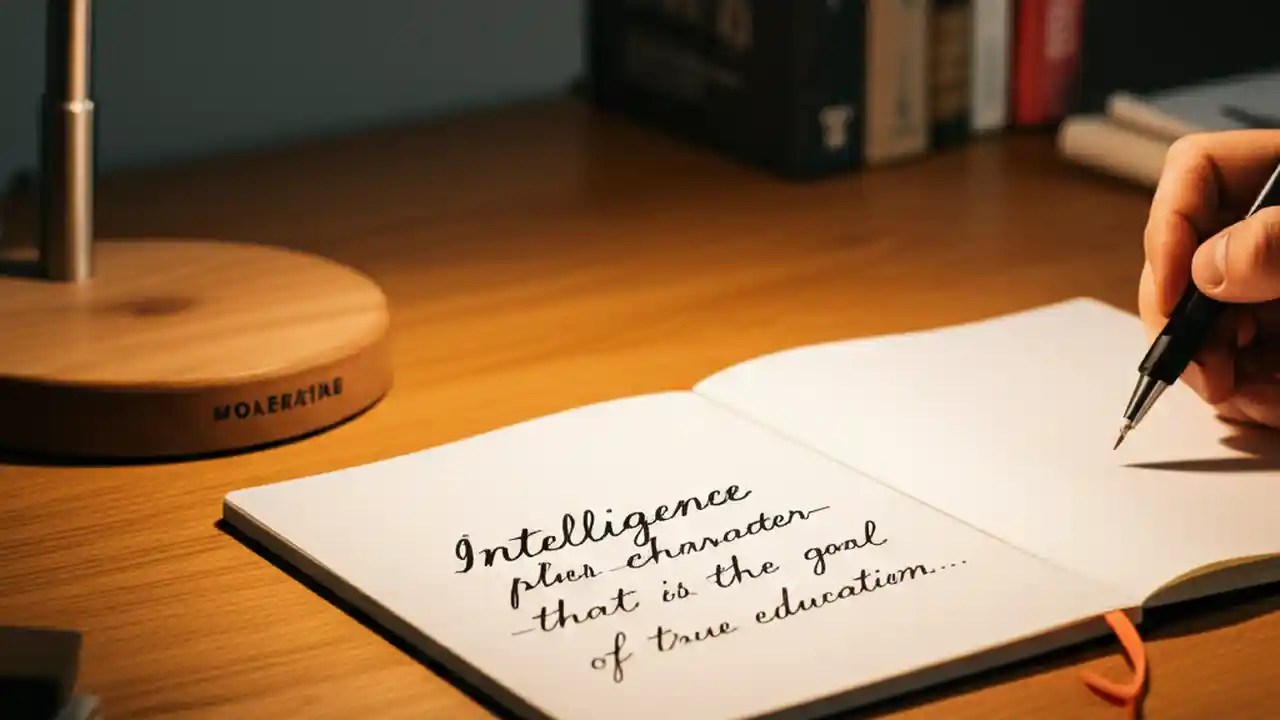 Intelligence
plus character-
-that is the goal
of true education....